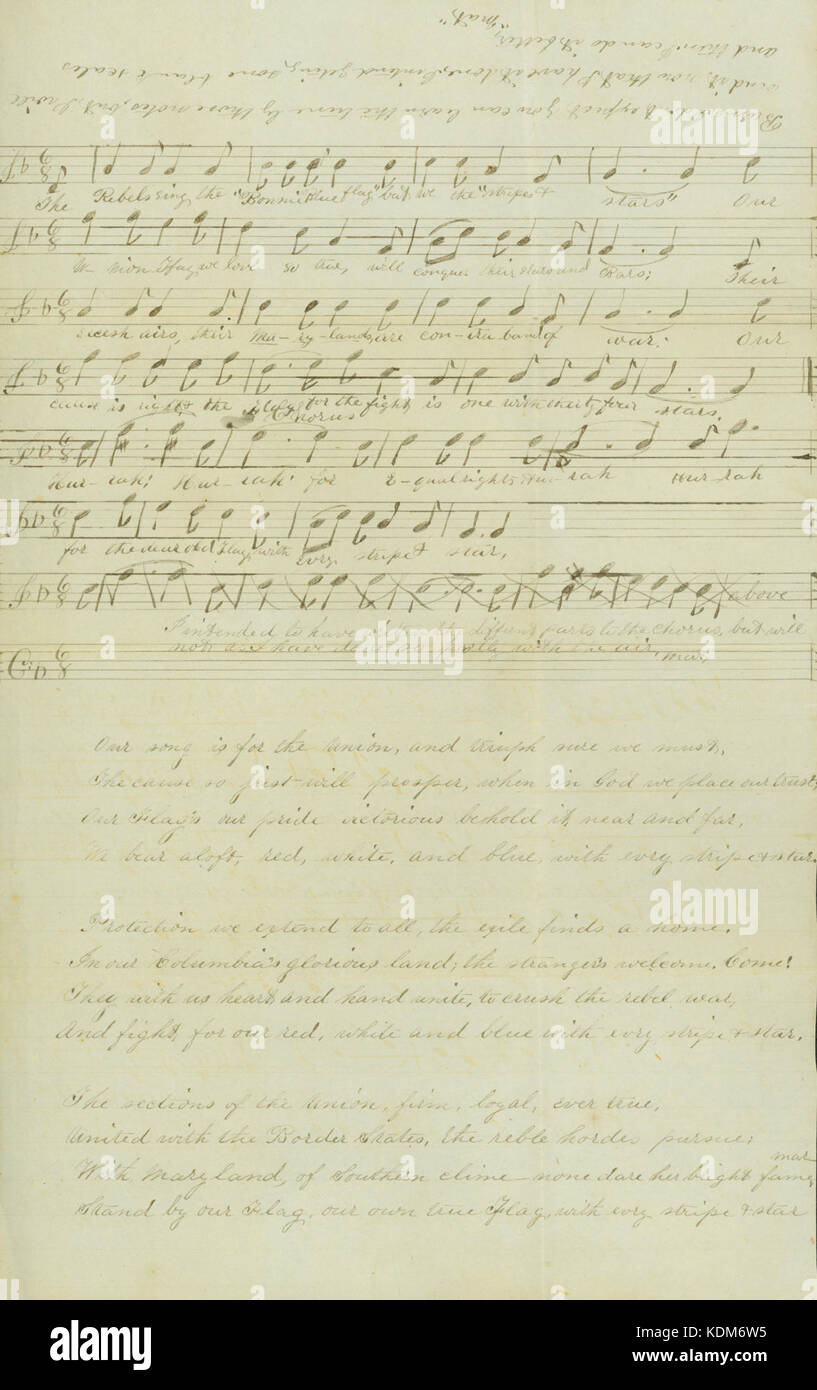 But I don't expect you can learn the tune by those notes, but I will
and it, now that I have it done, I intend getting some blank scales
and then I can do it better,
"Mat,"
The Rebels sing, the "Bonnie Blue flag" but we the "stripes & stars", Our
Union Flag, we love so true, will conquer their stars and Bars; Their
secesh airs, their Ma-ry-lands, are con-tra band of war; Our
cause is right, & the flag for the fight, is one with thirty four stars.
Chorus
Hur-rah! Hur-rah! for E-qual rights, Hur-rah Hur-rah
for the dear old Flag, with evry stripe & star,
above
I intended to have the diffrent parts to the chorus, but will
not as I have do it with the air, Mat,
Our song is for the Union, and triuph sure we must,
The cause so just will prosper, when in God we place our trust;
Our Flag's our pride victorious behold it, near and far,
We bear aloft, red, white, and blue, with evry stripe & star.
Protection we extend to all, the exile finds a home.
In our Columbia's glorious land; the stranger's welcome. Come!
They with us heart and hand unite, to crush the rebel war,
And fight, for our red, white and blue with evry stripe & star.
The sections of the Union, firm, loyal, ever true,
United with the Border States, the reble hordes pursue;
With Maryland, of Southern clime none dare her bright fame mar
Stand by our Flag, our own true Flag, with evry stripe & star
alamy stock photo
KDM6W5
www.alamy.com